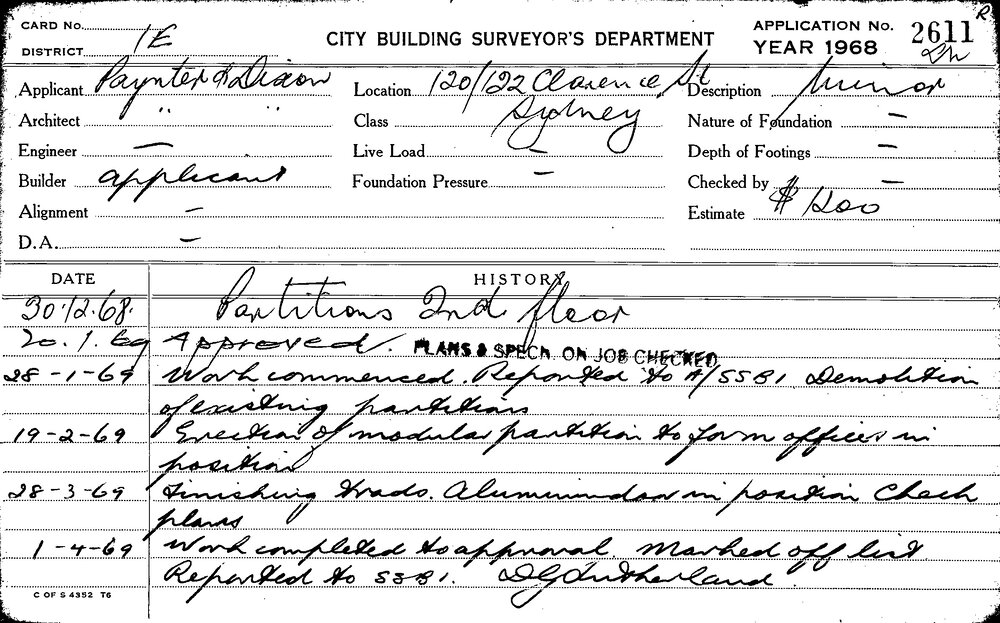 R
CARD No. CITY BUILDING SURVEYOR'S DEPARTMENT APPLICATION No. 2611
DISTRICT 1E YEAR 1968
Applicant Paynter & Dixon Location 120/122 Clarence St Description Minor
Architect " " Class Sydney Nature of Foundation —
Engineer — Live Load — Depth of Footings —
Builder applicant Foundation Pressure — Checked by —
Alignment — Estimate $1200
D.A. —
DATE HISTORY
30.12.68. Partitions 2nd floor
20.1.69 Approved. PLANS & SPECN. ON JOB CHECKED
28-1-69 Work commenced. Reported to A/SSB1. Demolition
of existing partitions
19-2-69 Erection of modular partition to form offices in
position
28-3-69 Finishing trades. in position Check
plans
1-4-69 Work completed to approval. Marked off list
Reported to SSB1. DG Sutherland
C OF S 4352 T6